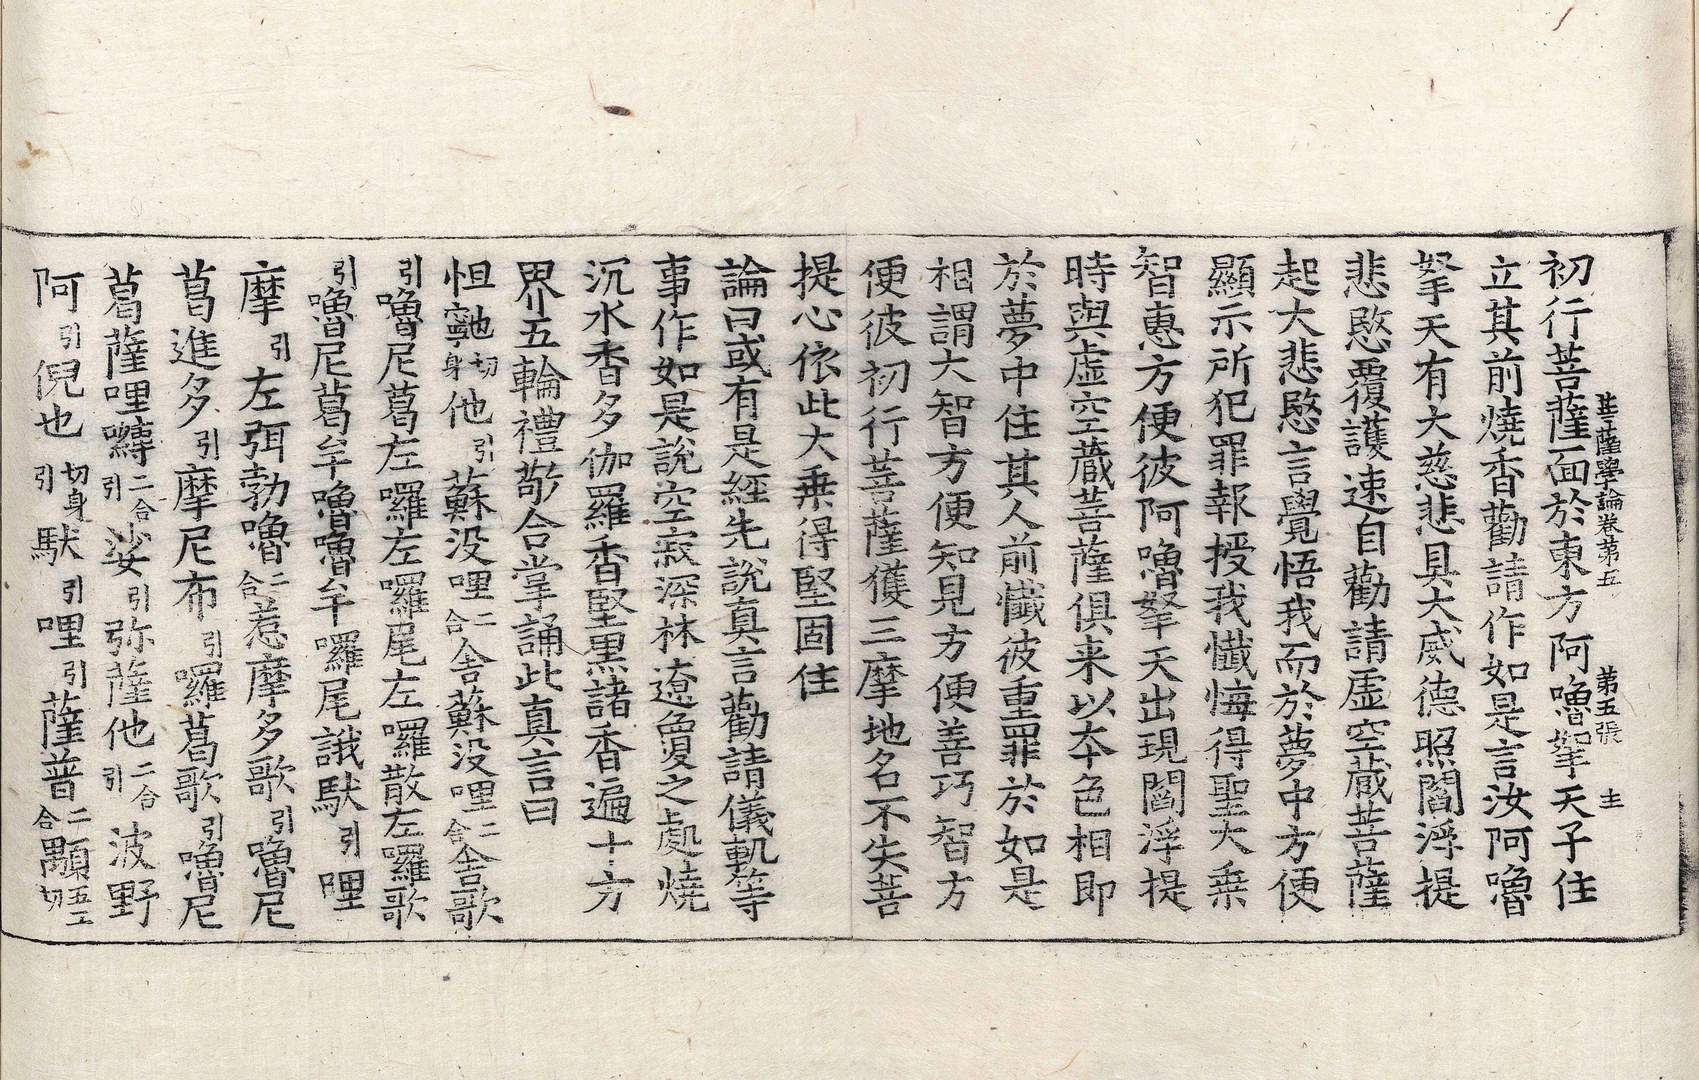 菩薩學論卷第五　第五張　主
初行菩薩面於東方阿嚕拏天子住
立其前燒香勸請作如是言汝阿嚕
拏天有大慈悲具大威德照閻浮提
悲愍覆護速自勸請虛空藏菩薩
起大悲愍言覺悟我而於夢中方便
顯示所犯罪報授我懺悔得聖大乗
智惠方便彼阿嚕拏天出現閻浮提
時與虛空藏菩薩俱来以夲色相即
於夢中住其人前懺彼重罪於如是
相謂大智方便知見方便善巧智方
便彼初行菩薩獲三摩地名不失菩
提心依此大乗得堅固住
論曰或有是經先說真言勸請儀軌等
事作如是說空寂深林遼敻之處燒
沉水香多伽羅香堅黒諸香遍十方
界五輪禮敬合掌誦此真言曰
怛寧也切身他引蘇没哩二合舍蘇没哩二合舍歌
引嚕尼葛左囉左囉尾左囉散左囉歌
引嚕尼葛牟嚕嚕牟囉尾誐馱引哩
摩引左弭勃嚕二合惹摩多歌引嚕尼
葛進多引摩尼布引囉葛歌引嚕尼
葛薩哩嚩二合引娑引弥薩他二合引波野
阿引倪也切身引馱引哩引薩普二合顒五工切